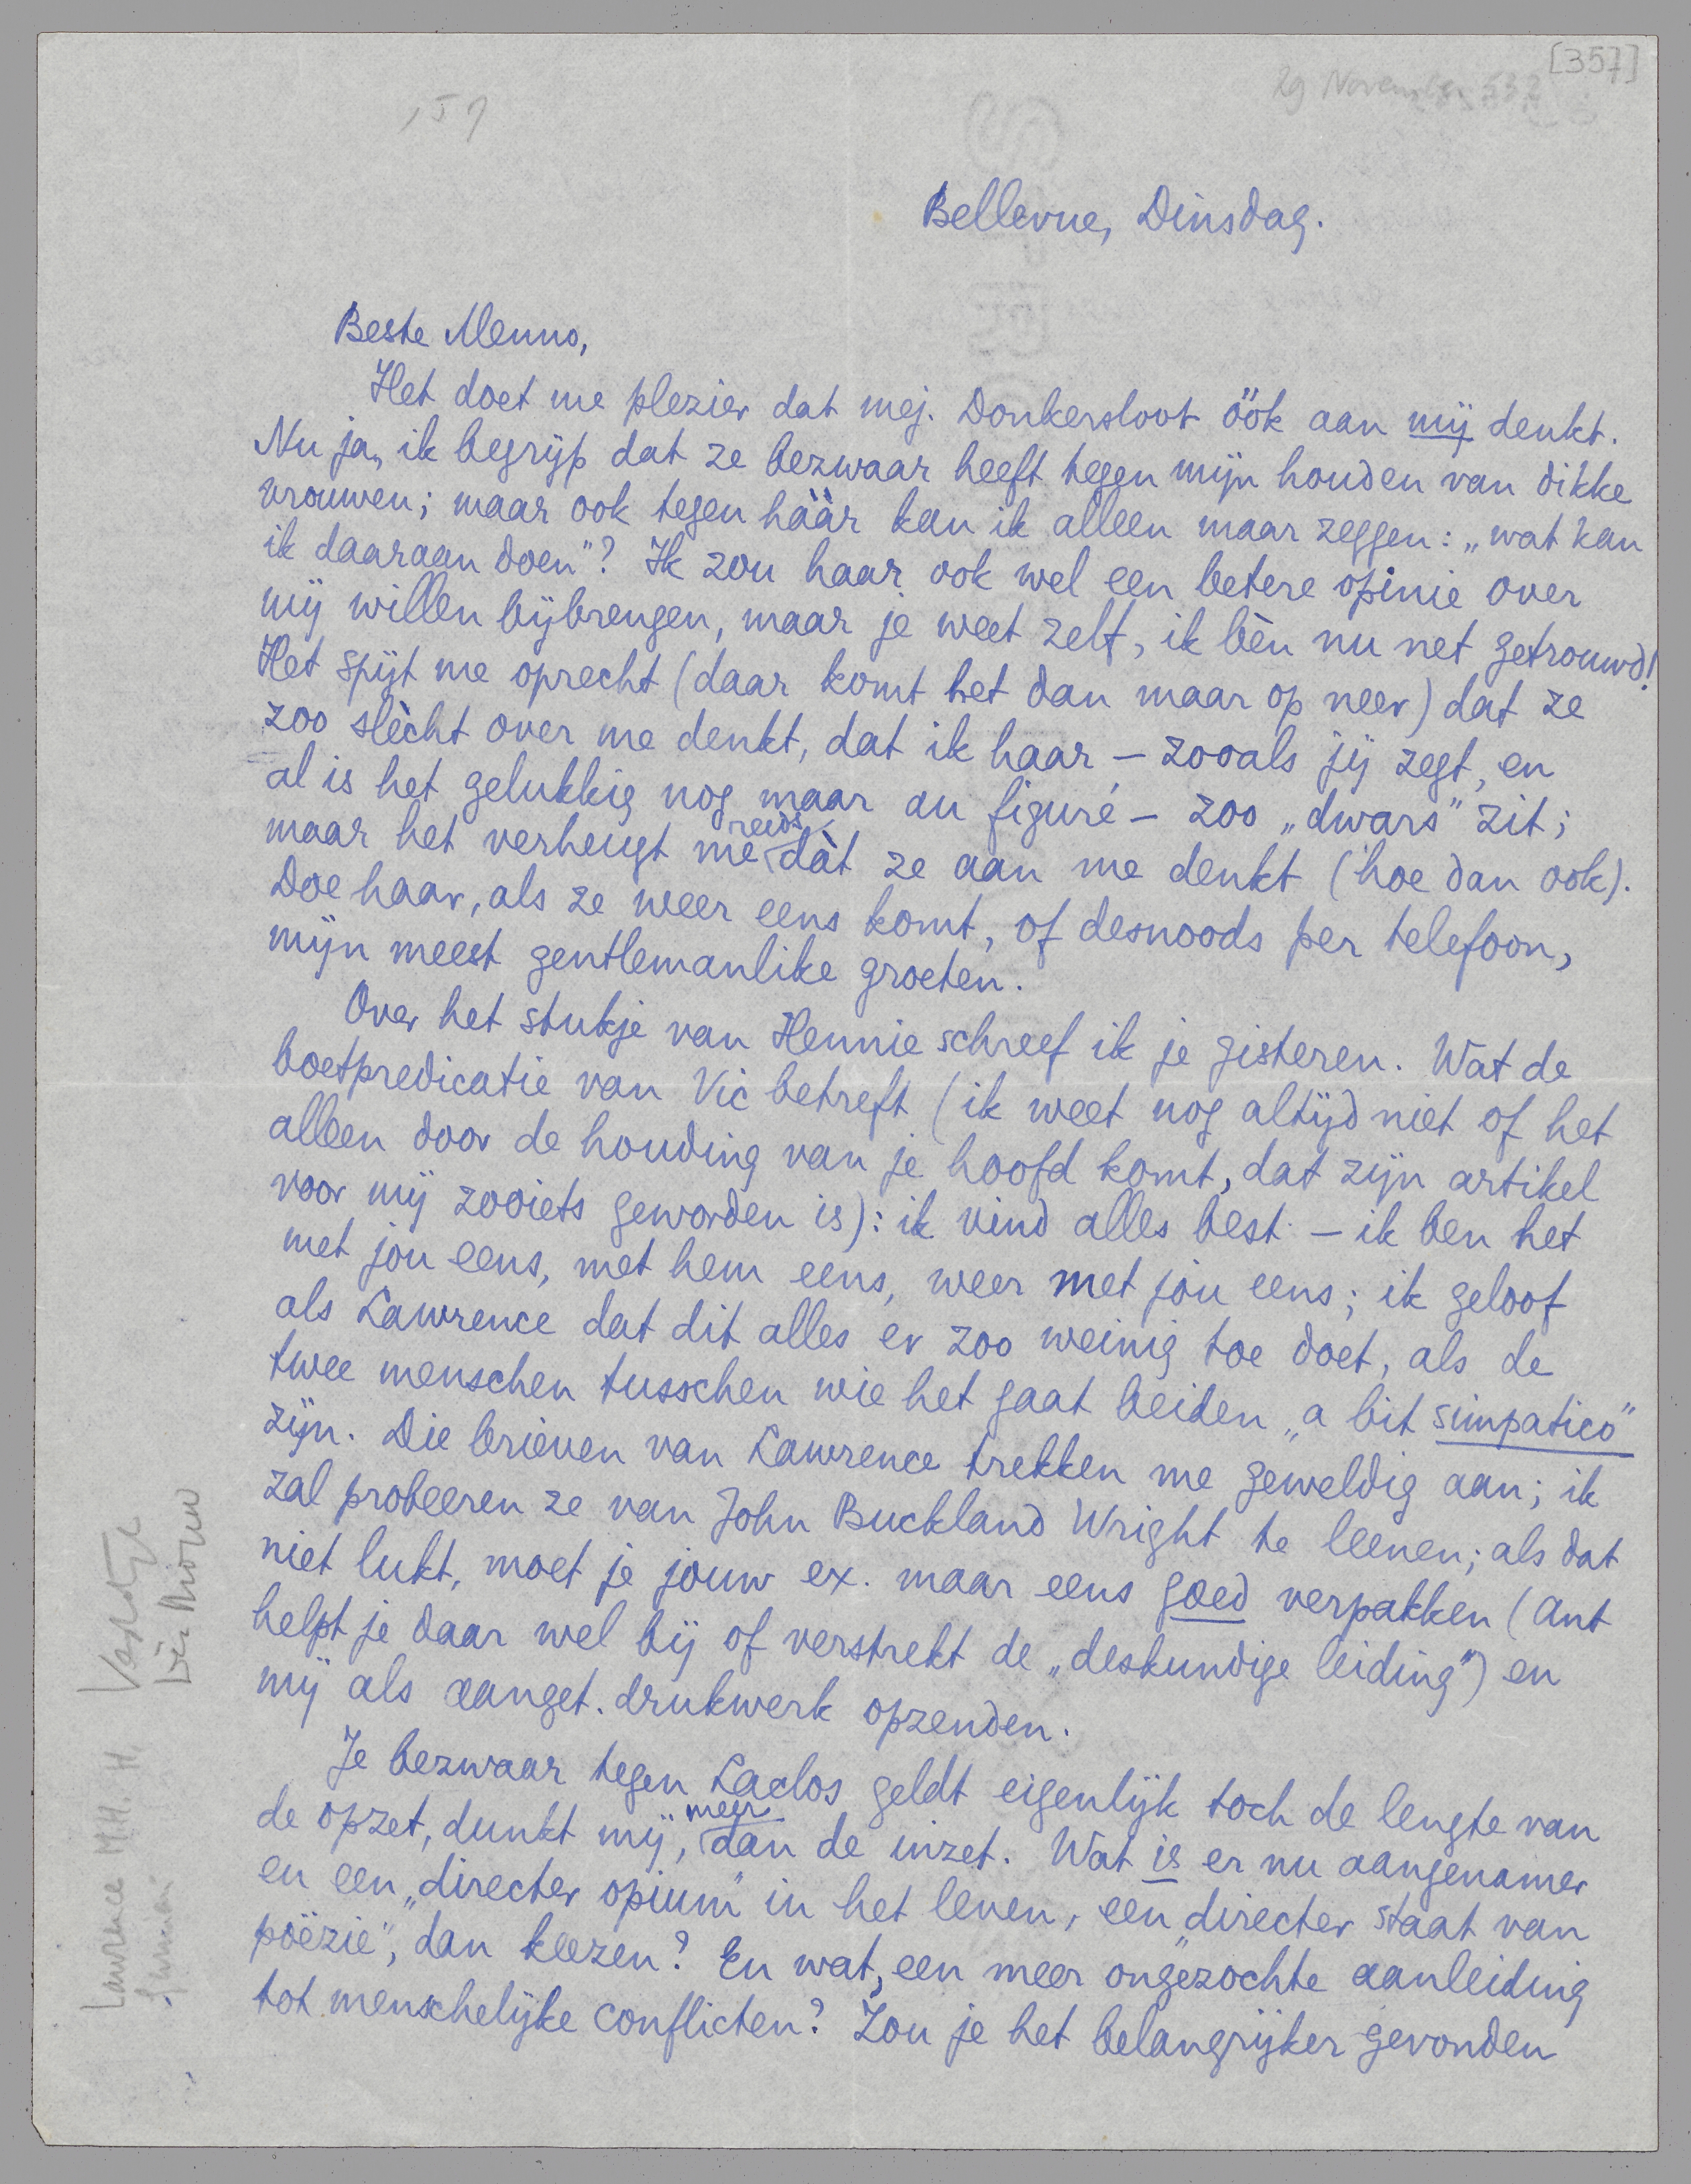 [357]
29 November 532
Bellevue, Dinsdag.
Beste Menno,
Het doet me plezier dat mej. Donkersloot öök aan mij denkt.
Nu ja, ik begrijp dat ze bezwaar heeft tegen mijn houden van dikke
vrouwen; maar ook tegen hààr kan ik alleen maar zeggen: „wat kan
ik daaraan doen"? Ik zou haar ook wel een betere opinie over
mij willen bijbrengen, maar je weet zelf, ik bèn nu net getrouwd!
Het spijt me oprecht (daar komt het dan maar op neer) dat ze
zoo slècht over me denkt, dat ik haar – zooals jij zegt, en
al is het gelukkig nog maar au figuré – zoo „dwars" zit;
maar het verheugt me reeds dàt ze aan me denkt (hoe dan ook).
Doe haar, als ze weer eens komt, of desnoods per telefoon,
mijn meest gentlemanlike groeten.
Over het stukje van Hennie schreef ik je gisteren. Wat de
boetpredicatie van Vic betreft (ik weet nog altijd niet of het
alleen door de houding van je hoofd komt, dat zijn artikel
voor mij zooiets geworden is): ik vind alles best – ik ben het
met jou eens, met hem eens, weer met jou eens; ik geloof
als Lawrence dat dit alles er zoo weinig toe doet, als de
twee menschen tusschen wie het gaat beiden „a bit simpatico"
zijn. Die brieven van Lawrence trekken me geweldig aan; ik
zal probeeren ze van John Buckland Wright te leenen; als dat
niet lukt, moet je jouw ex. maar eens goed verpakken (Ant
helpt je daar wel bij of verstrekt de „deskundige leiding") en
mij als aanget. drukwerk opzenden.
Je bezwaar tegen Laclos geldt eigenlijk toch de lengte van
de opzet, dunkt mij, meer dan de inzet. Wat is er nu aangenamer
en een „directer opium" in het leven, een „directer staat van
poëzie", dan kiezen? En wat, een meer ongezochte aanleiding
tot menschelijke conflicten? Zou je het belangrijker gevonden
Lawrence